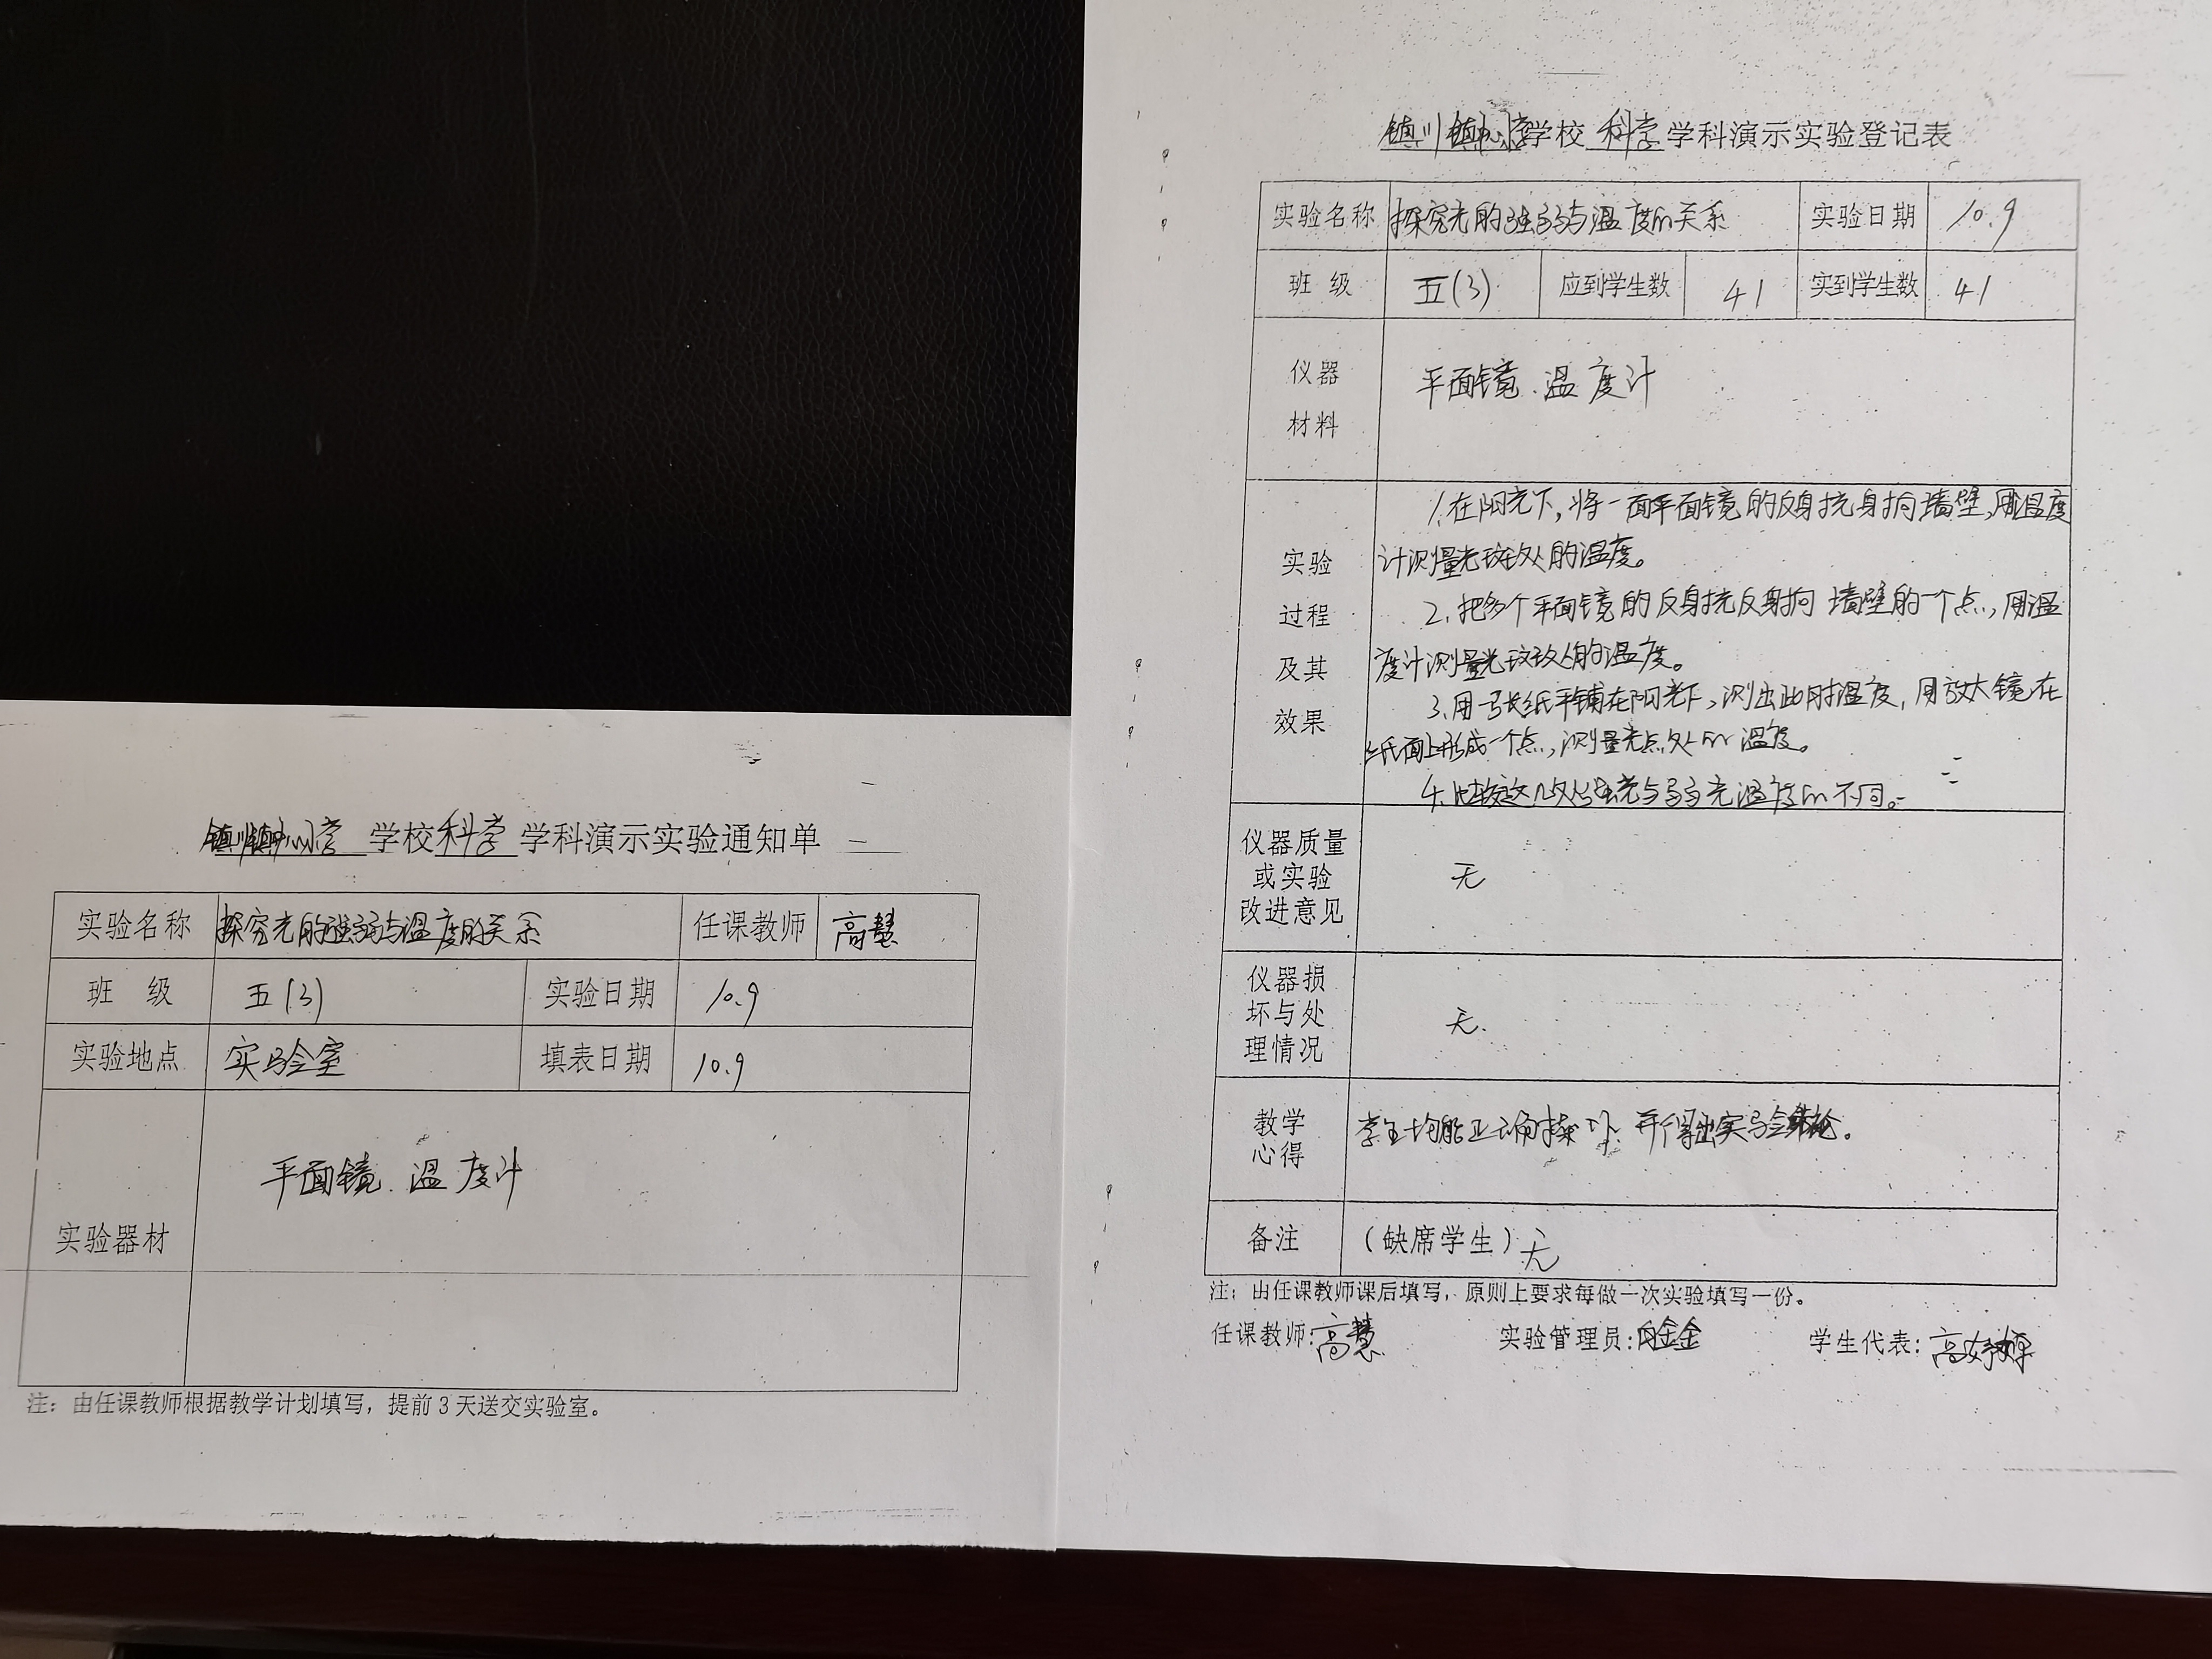 镇川镇中心小学 学校 科学 学科演示实验通知单
实验名称 探究光的强弱与温度的关系 任课教师 高慧
班 级 五(3) 实验日期 10.9
实验地点 实验室 填表日期 10.9
实验器材 平面镜、温度计
注：由任课教师根据教学计划填写，提前3天送交实验室。
镇川镇中心小学 学校 科学 学科演示实验登记表
实验名称 探究光的强弱与温度的关系 实验日期 10.9
班 级 五(3) 应到学生数 41 实到学生数 41
仪器
材料
平面镜、温度计
实验
过程
及其
效果
1.在阳光下,将一面平面镜的反射光射向墙壁,用温度
计测量光斑处的温度。
2.把多个平面镜的反射光反射向墙壁的一个点,用温
度计测量光斑处的温度。
3.用一张纸平铺在阳光下,测出此时温度,用放大镜在
纸面上形成一个点,测量光点处的温度。
4.比较这几处强光与弱光温度的不同。
仪器质量
或实验
改进意见
无
仪器损
坏与处
理情况
无.
教学
心得
学生均能正确操作,并得出实验结论。
备注 （缺席学生）无
注：由任课教师课后填写，原则上要求每做一次实验填写一份。
任课教师:高慧 实验管理员: 学生代表:高